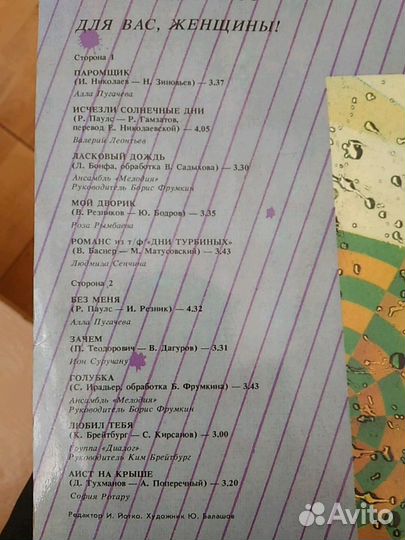 ДЛЯ ВАС, ЖЕНЩИНЫ!
Сторона 1
ПАРОМЩИК
(И. Николаев — Н. Зиновьев) — 3.37
Алла Пугачева
ИСЧЕЗЛИ СОЛНЕЧНЫЕ ДНИ
(Р. Паулс — Р. Гамзатов,
перевод Е. Николаевской) — 4.05
Валерий Леонтьев
ЛАСКОВЫЙ ДОЖДЬ
(Л. Бонфа, обработка В. Садыхова) — 3.30
Ансамбль «Мелодия»
Руководитель Борис Фрумкин
МОЙ ДВОРИК
(В. Резников — Ю. Бодров) — 3.35
Роза Рымбаева
РОМАНС из т/ф «ДНИ ТУРБИНЫХ»
(В. Баснер — М. Матусовский) — 3.43
Людмила Сенчина
Сторона 2
БЕЗ МЕНЯ
(Р. Паулс — И. Резник) — 4.32
Алла Пугачева
ЗАЧЕМ
(П. Теодорович — В. Дагуров) — 3.31
Ион Суручану
ГОЛУБКА
(С. Ирадьер, обработка Б. Фрумкина) — 3.43
Ансамбль «Мелодия»
Руководитель Борис Фрумкин
ЛЮБИЛ ТЕБЯ
(К. Брейтбург — С. Кирсанов) — 3.00
Группа «Диалог»
Руководитель Ким Брейтбург
АИСТ НА КРЫШЕ
(Д. Тухманов — А. Поперечный) — 3.20
София Ротару
Редактор И. Йотко. Художник Ю. Балашов
Avito